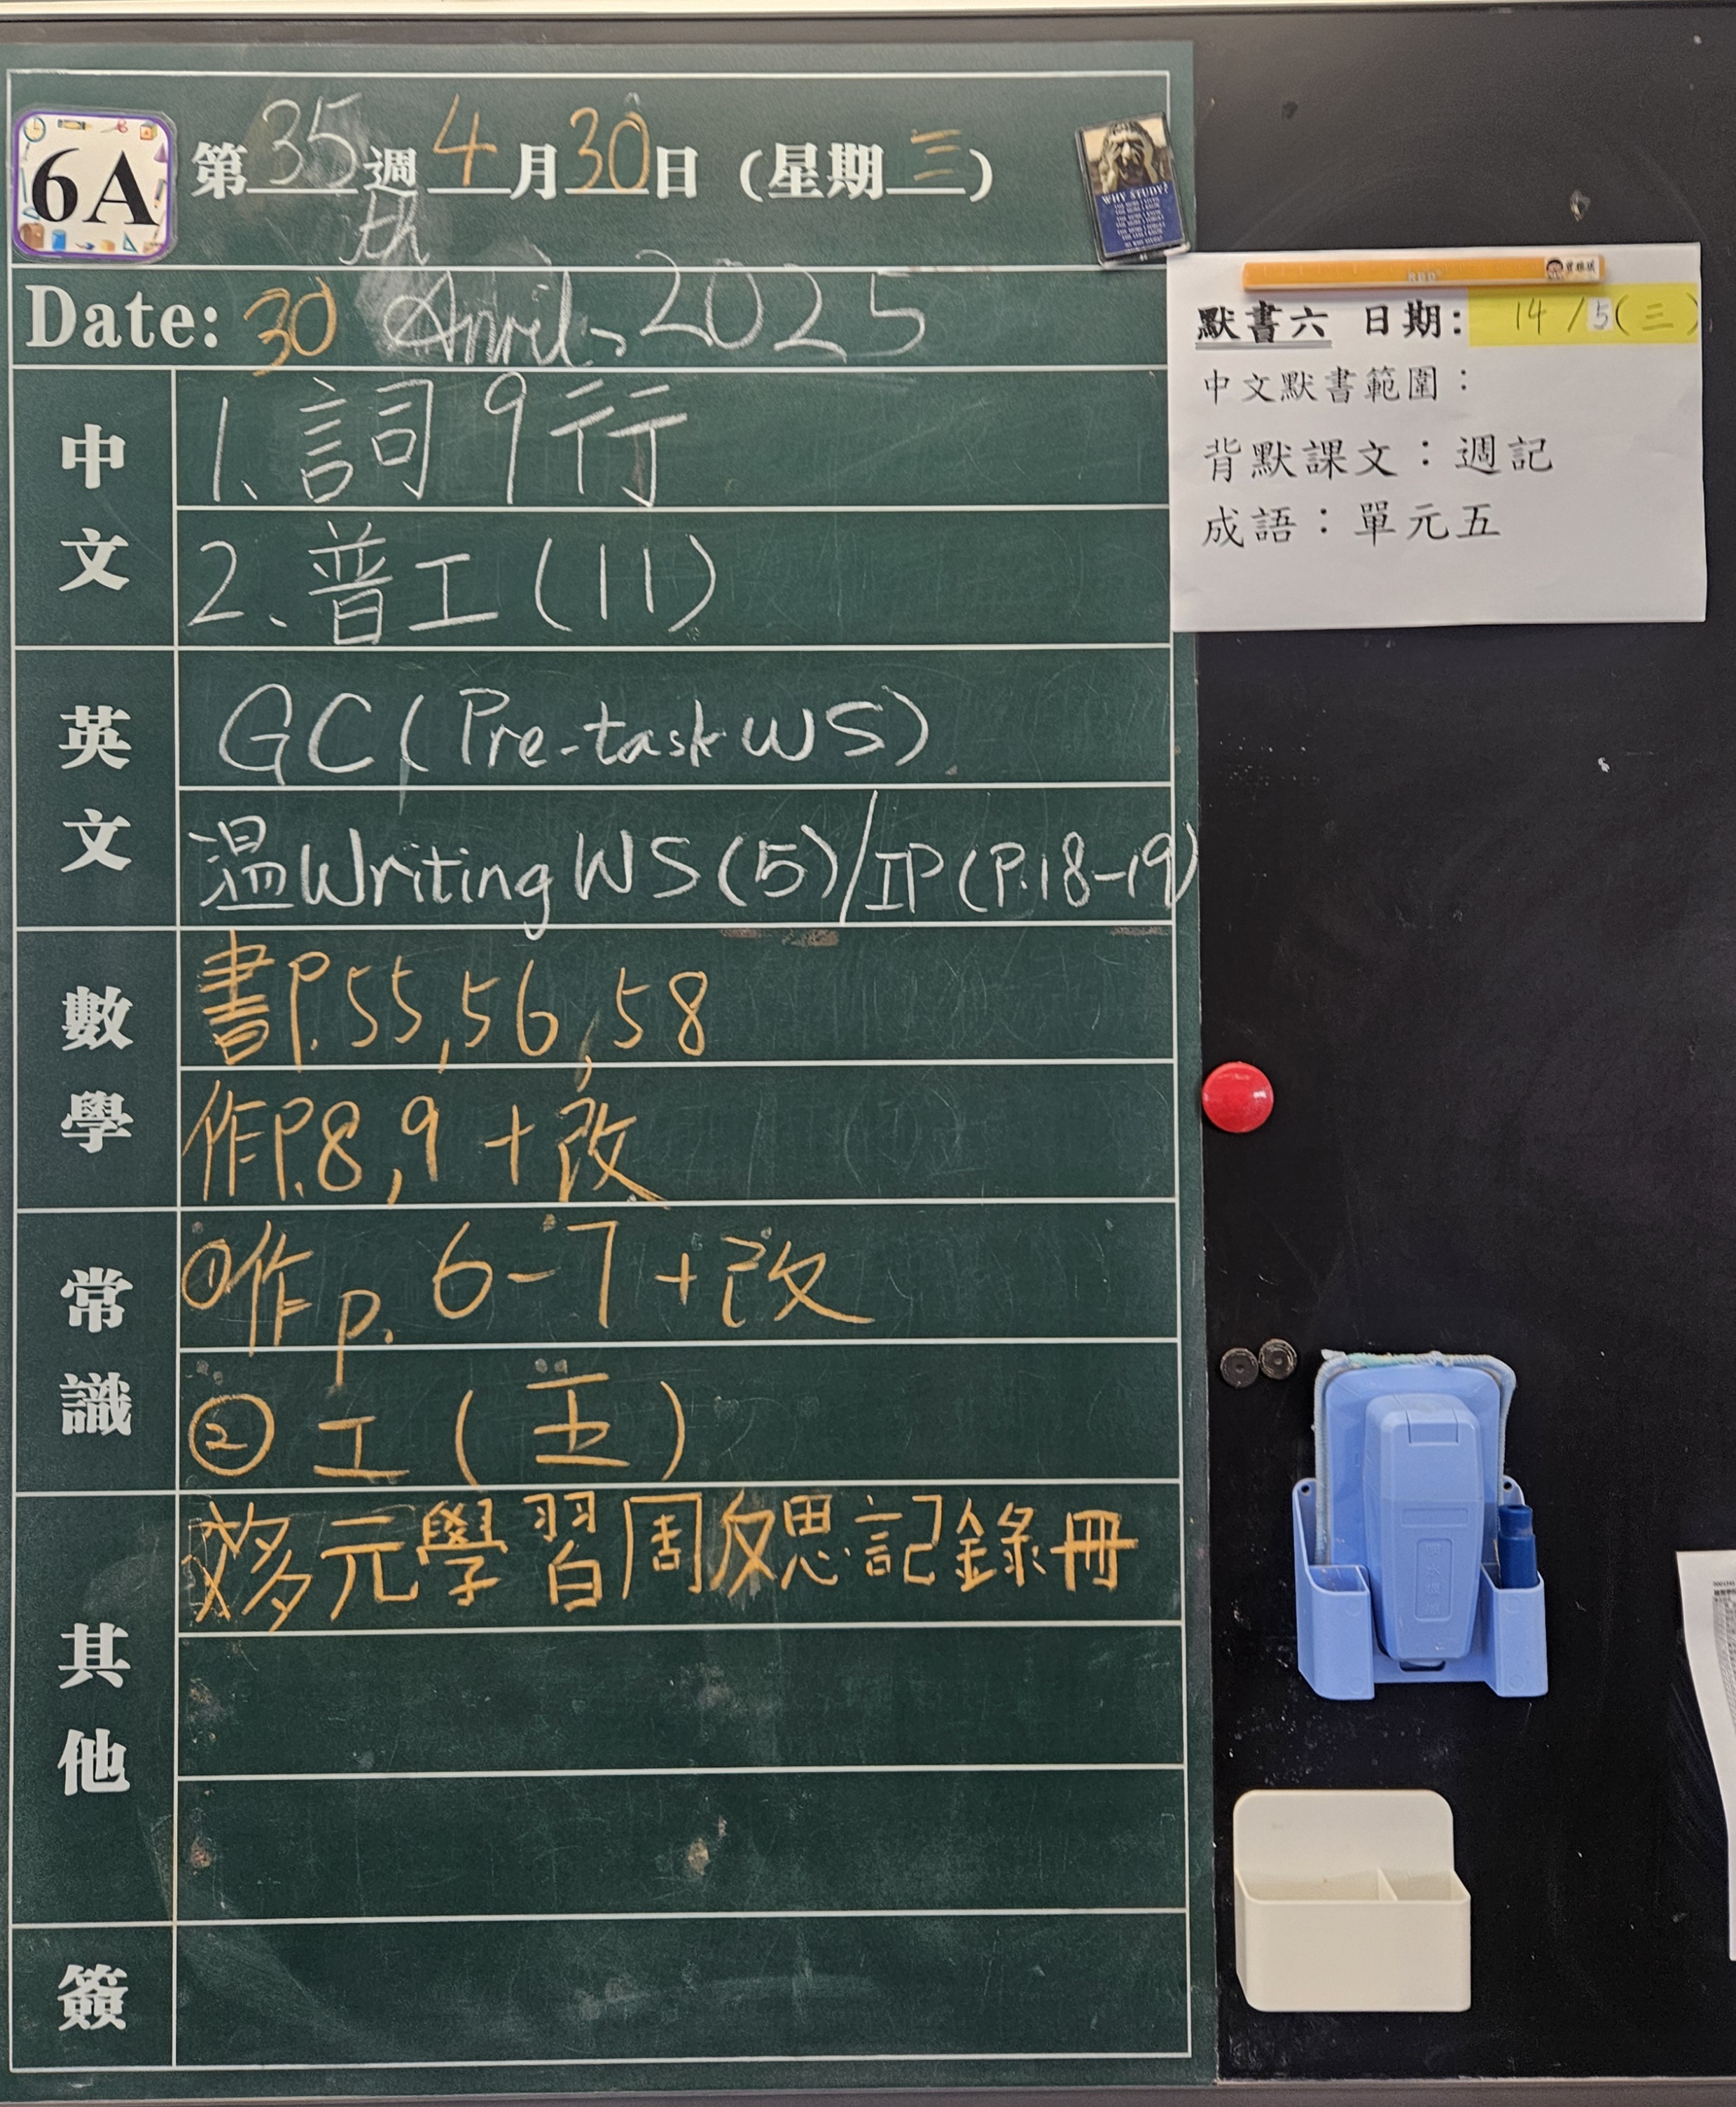 6A
第35週4月30日（星期三）
th
Date: 30 April, 2025
WHY STUDY?
中文
1、詞9行
2、普工(11)
英文
GC (Pre-task WS)
溫Writing WS(5)/IP(P.18-19)
數學
書P.55,56,58
作P.8,9 +改
常識
①作p.6-7+改
②工(五)
其他
多元學習周反思記錄冊
簽
默書六 日期: 14/5(三)
中文默書範圍：
背默課文：週記
成語：單元五